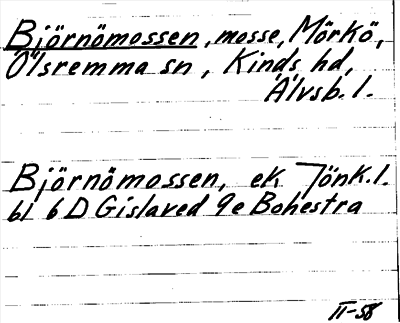 Björnömossen, mosse, Mörkö,
Ölsremma sn, Kinds hd,
Älvsb. l.
Björnömossen, ek. Jönk. l.
bl 6 D Gislaved 9e Bohestra
II-58